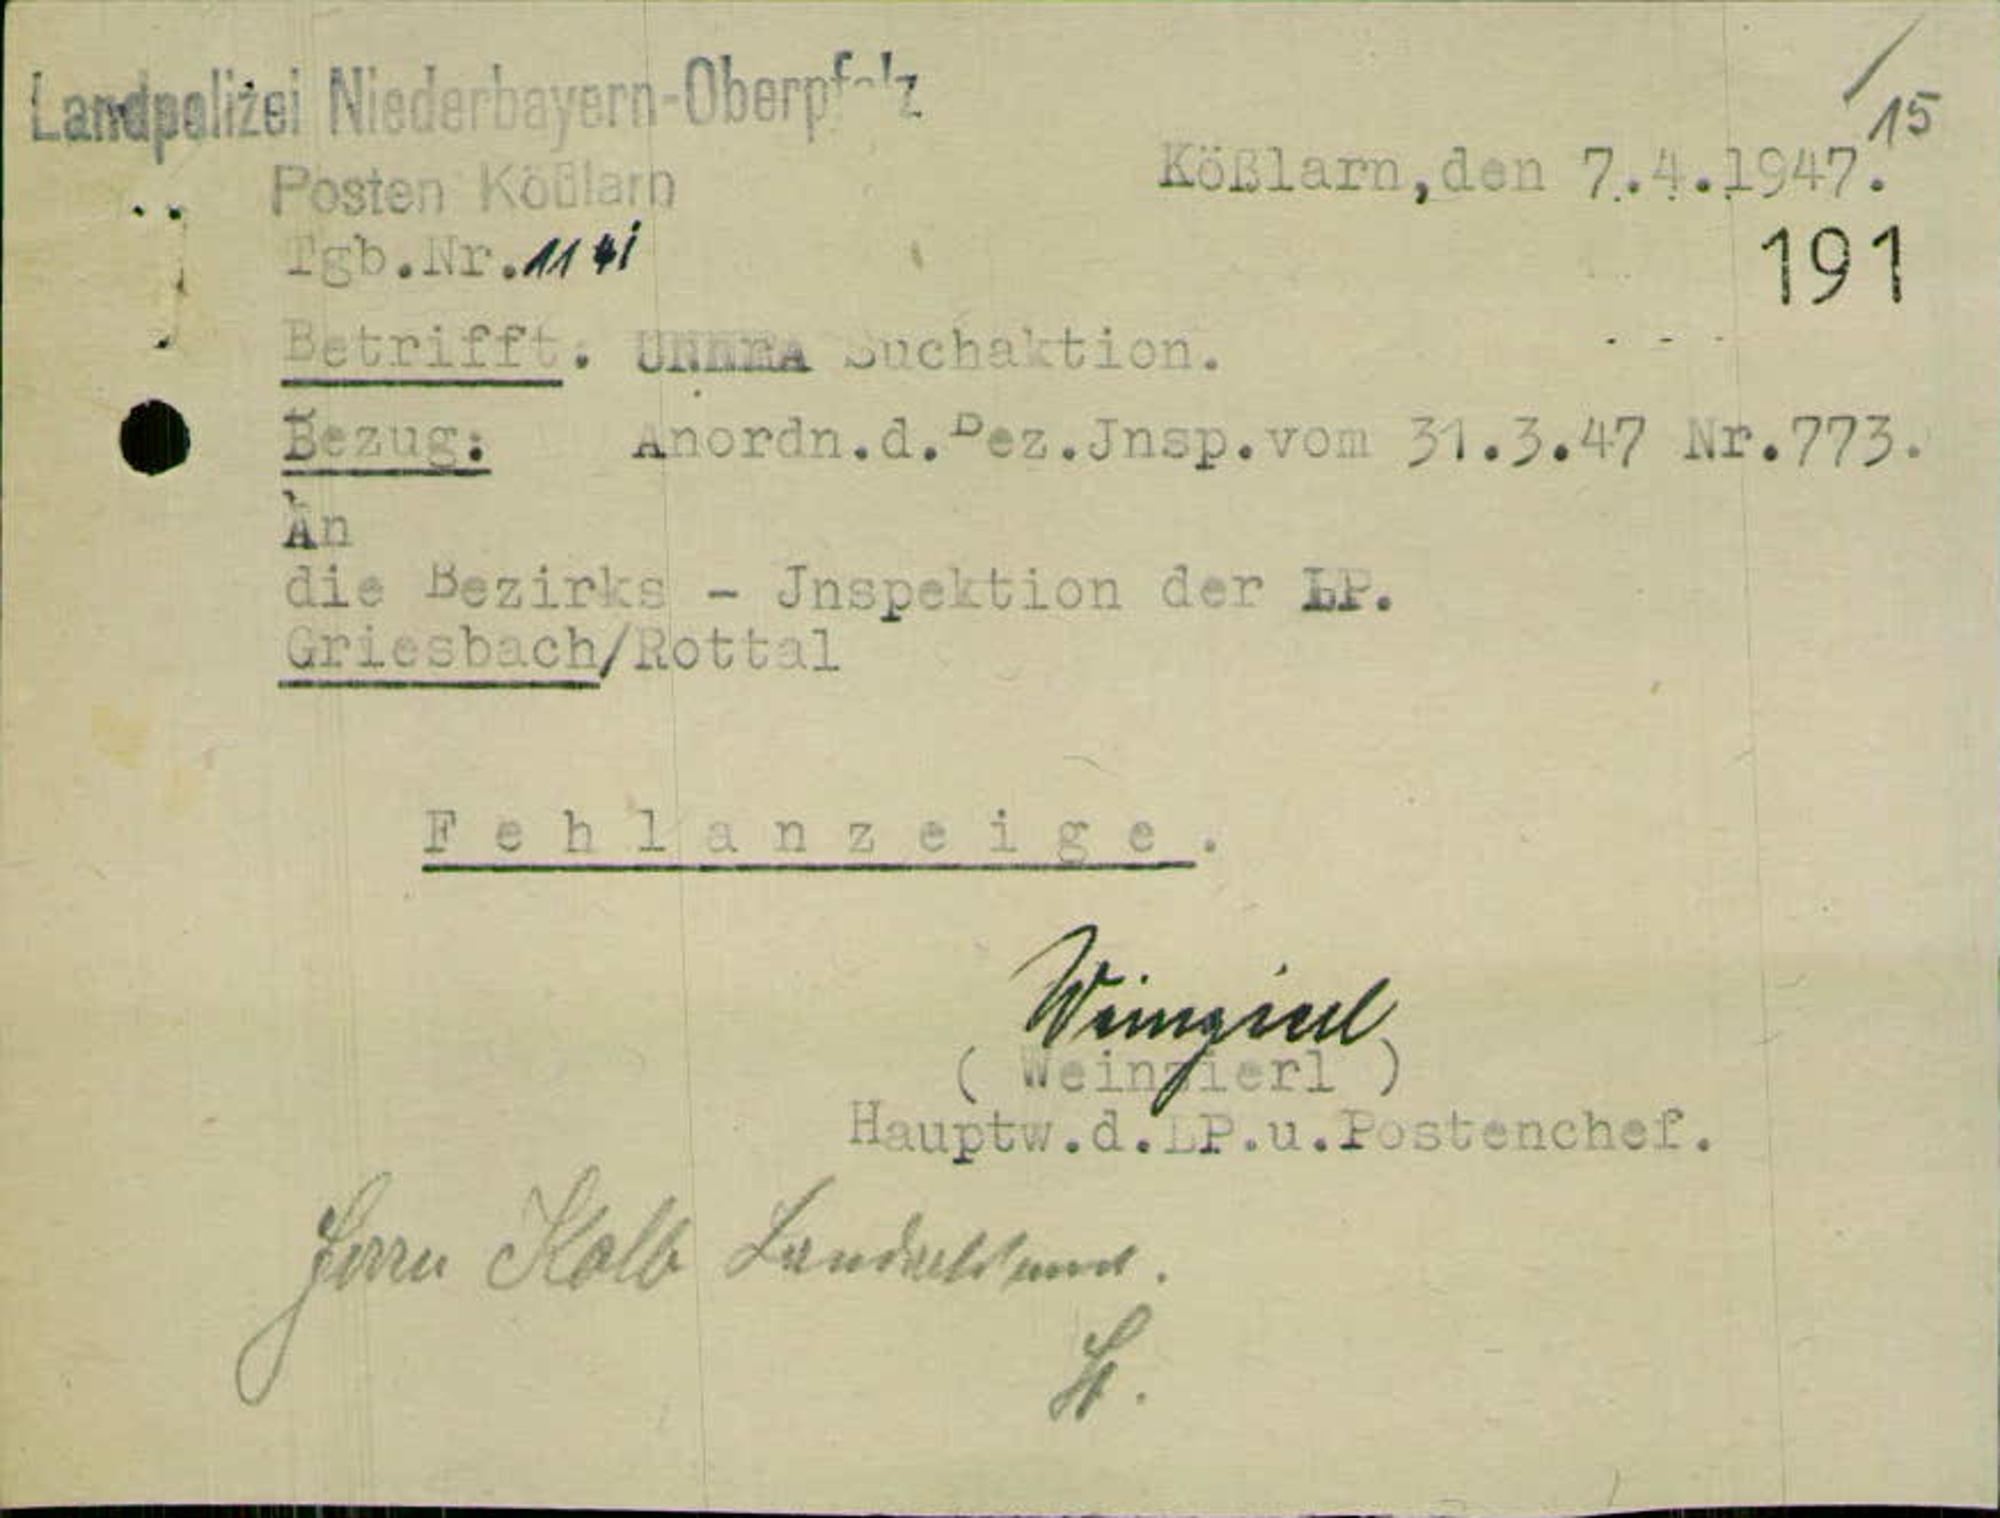 Landpolizei Niederbayern-Oberpfalz
15
Posten Kößlarn
Kößlarn,den 7.4.1947.
Tgb.Nr.
191
Betrifft. UNRRA Suchaktion.
Bezug: Anordn.d.Bez.Jnsp.vom 31.3.47 Nr.773.
An
die Bezirks - Jnspektion der LP.
Griesbach/Rottal
F e h l a n z e i g e .
Weinzierl
( Weinzierl )
Hauptw.d.LP.u.Postenchef.
Herrn Kolb